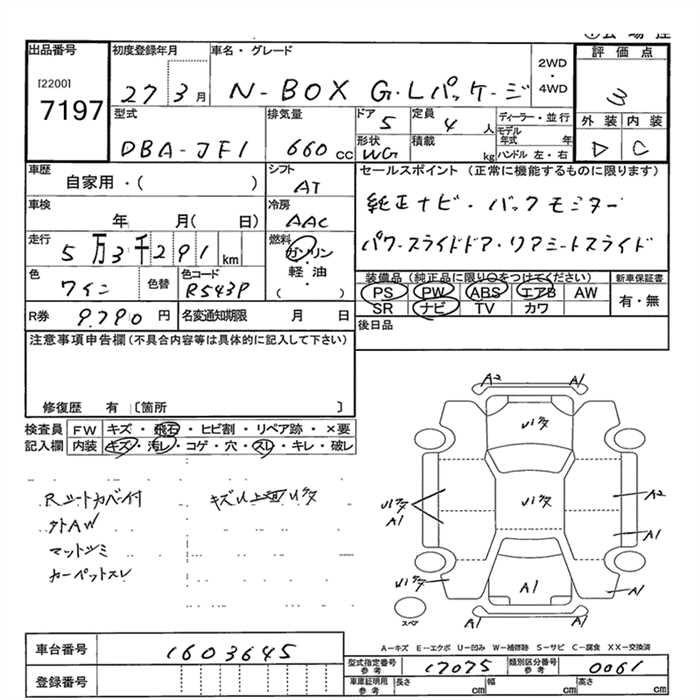 出品番号
[2200]
7197
初度登録年月
27 3月
車名・グレード
N-BOX G・Lパッケージ
2WD
・
4WD
評価点
3
型式
DBA-JF1
排気量
660cc
ドア
5
定員
4 人
ディーラー・並行
モデル年式 年
ハンドル 左・右
形状
WG
積載 kg
外装 内装
D C
車歴
自家用・( )
シフト
AT
セールスポイント (正常に機能するものに限ります)
純正ナビ・バックモニター
パワースライドドア・リアシートスライド
車検
年 月( 日)
冷房
AAC
走行
5万3千291km
燃料
ガソリン
・
軽油
( )
色
ワイン
色替
色コード
R543P
装備品 (純正品に限り○をつけてください)
PS PW ABS エアB AW
SR ナビ TV カワ
新車保証書
有・無
R券
9.790円
名変通知期限 月 日
後日品
注意事項申告欄(不具合内容等は具体的に記入して下さい)
修復歴 有 〔箇所 〕
検査員 FW キズ・飛石・ヒビ割・リペア跡・×要
記入欄 内装 キズ・汚レ・コゲ・穴・スレ・キレ・破レ
Rシートカバー付
外AW
マットシミ
カーペットスレ
A2 A1
A2
A1
A1
A1
A1
A1 A1
スペア
A-キズ E-エクボ U-凹み W-補修跡 S-サビ C-腐食 XX-交換済
車台番号 1603645
型式指定番号
参考
17075
類別区分番号
参考
0061
登録番号
車庫証明用
参考
長さ cm 幅 cm 高さ cm